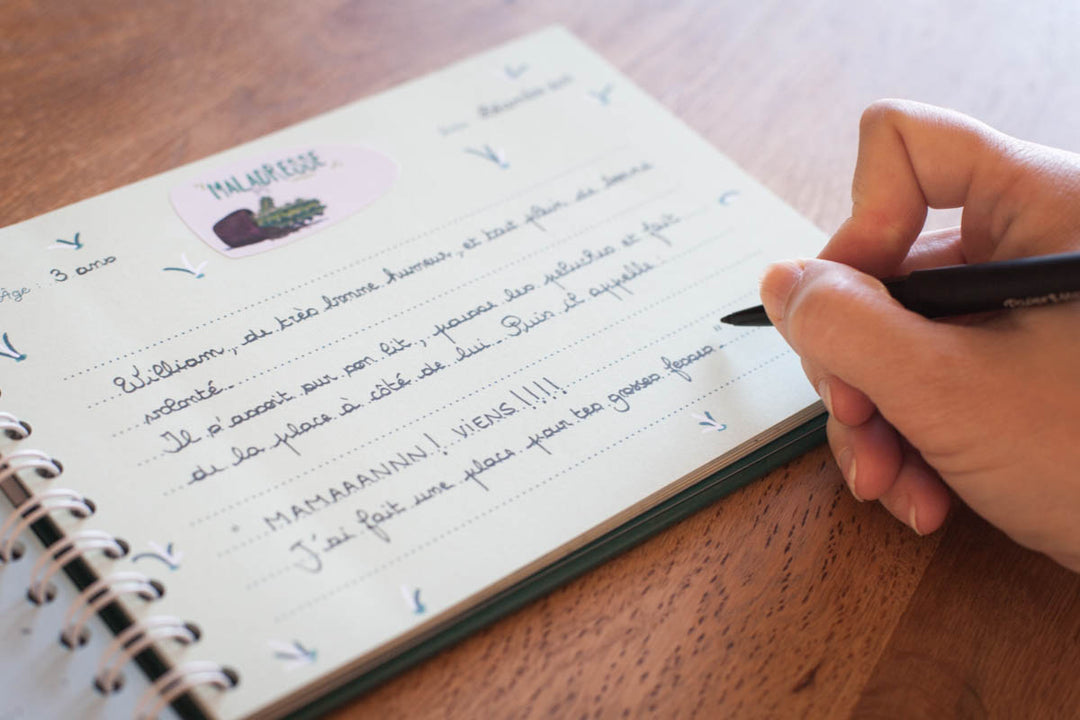 "MALADRESSE"
Âge : 3 ans
William, de très bonne humeur, et tout plein de bonne
volonté.
Il s'assoit sur son lit, pousse les peluches et fait
de la place à côté de lui. Puis il appelle :
" MAMAAANNN! VIENS!!!!!
J'ai fait une place pour tes grosses fesses. "